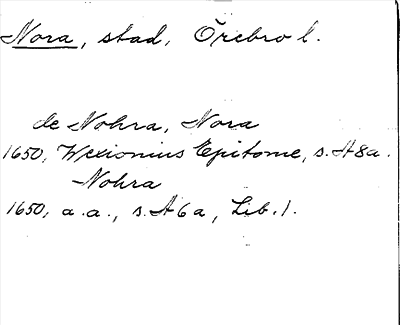 Nora, stad, Örebro l.
de Nohra, Nora
1650, Wexionius Epitome, s. A8a.
Nohra
1650, a.a., s. A6a, Lib. 1.